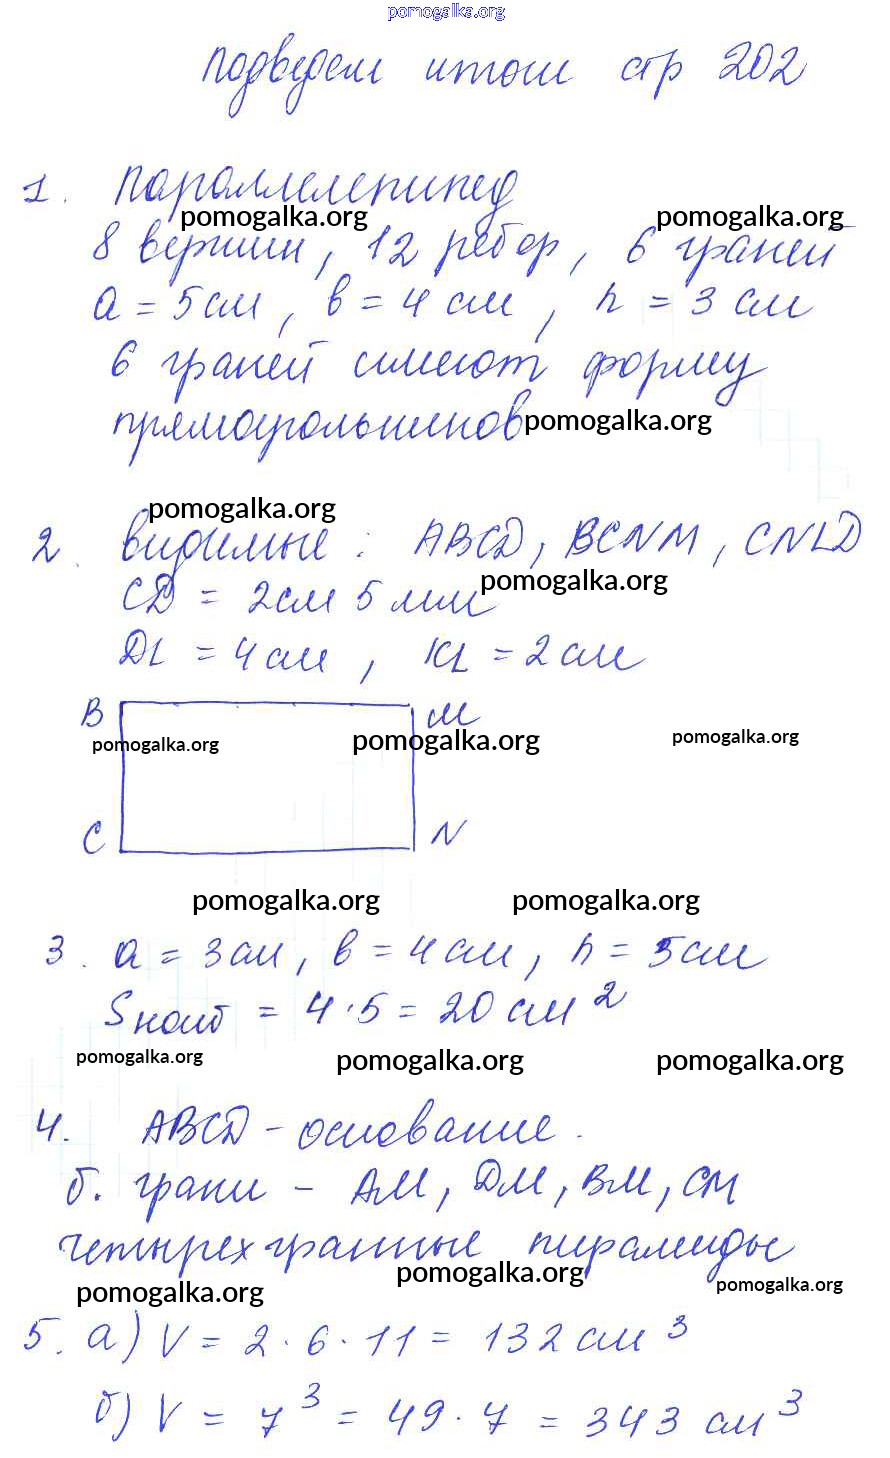 pomogalka.org
Подведем итоги стр 202
1. Параллелепипед
pomogalka.org pomogalka.org
8 вершин, 12 ребер, 6 граней
a = 5 см, b = 4 см, h = 3 см
6 граней имеют форму
прямоугольников pomogalka.org
pomogalka.org
2. видимые: ABCD, BCNM, CNLD
pomogalka.org
CD = 2см 5 мм
DL = 4 см, KL = 2 см
B M
pomogalka.org pomogalka.org pomogalka.org
C N
pomogalka.org pomogalka.org
3. a = 3 см, b = 4 см, h = 5 см
Sнаиб = 4·5 = 20 см²
pomogalka.org pomogalka.org pomogalka.org
4. ABCD - основание.
б. грани - AM, DM, BM, CM
четырехгранные пирамиды
pomogalka.org pomogalka.org pomogalka.org
5. а) V = 2·6·11 = 132 см³
б) V = 7³ = 49·7 = 343 см³